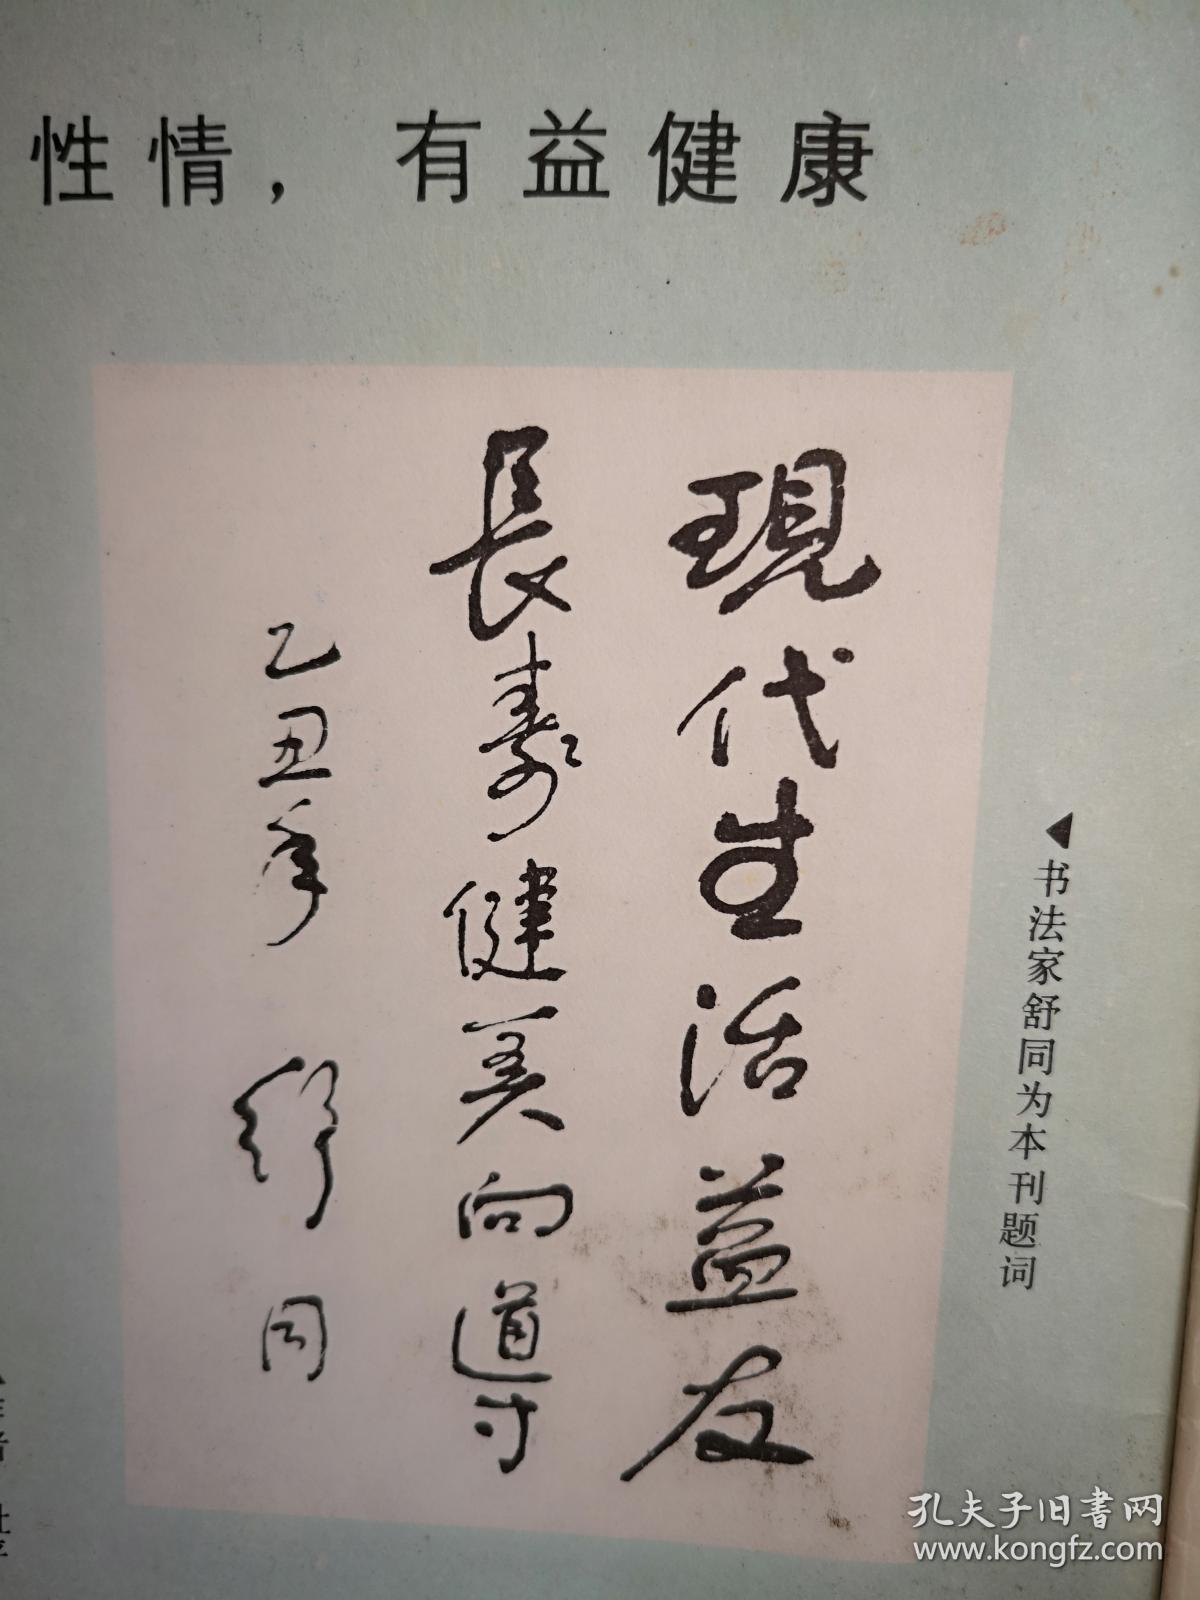 性情，有益健康
現代生活益友
長壽健美向導
乙丑年 舒同
◀书法家舒同为本刊题词
孔夫子旧書网
www.kongfz.com